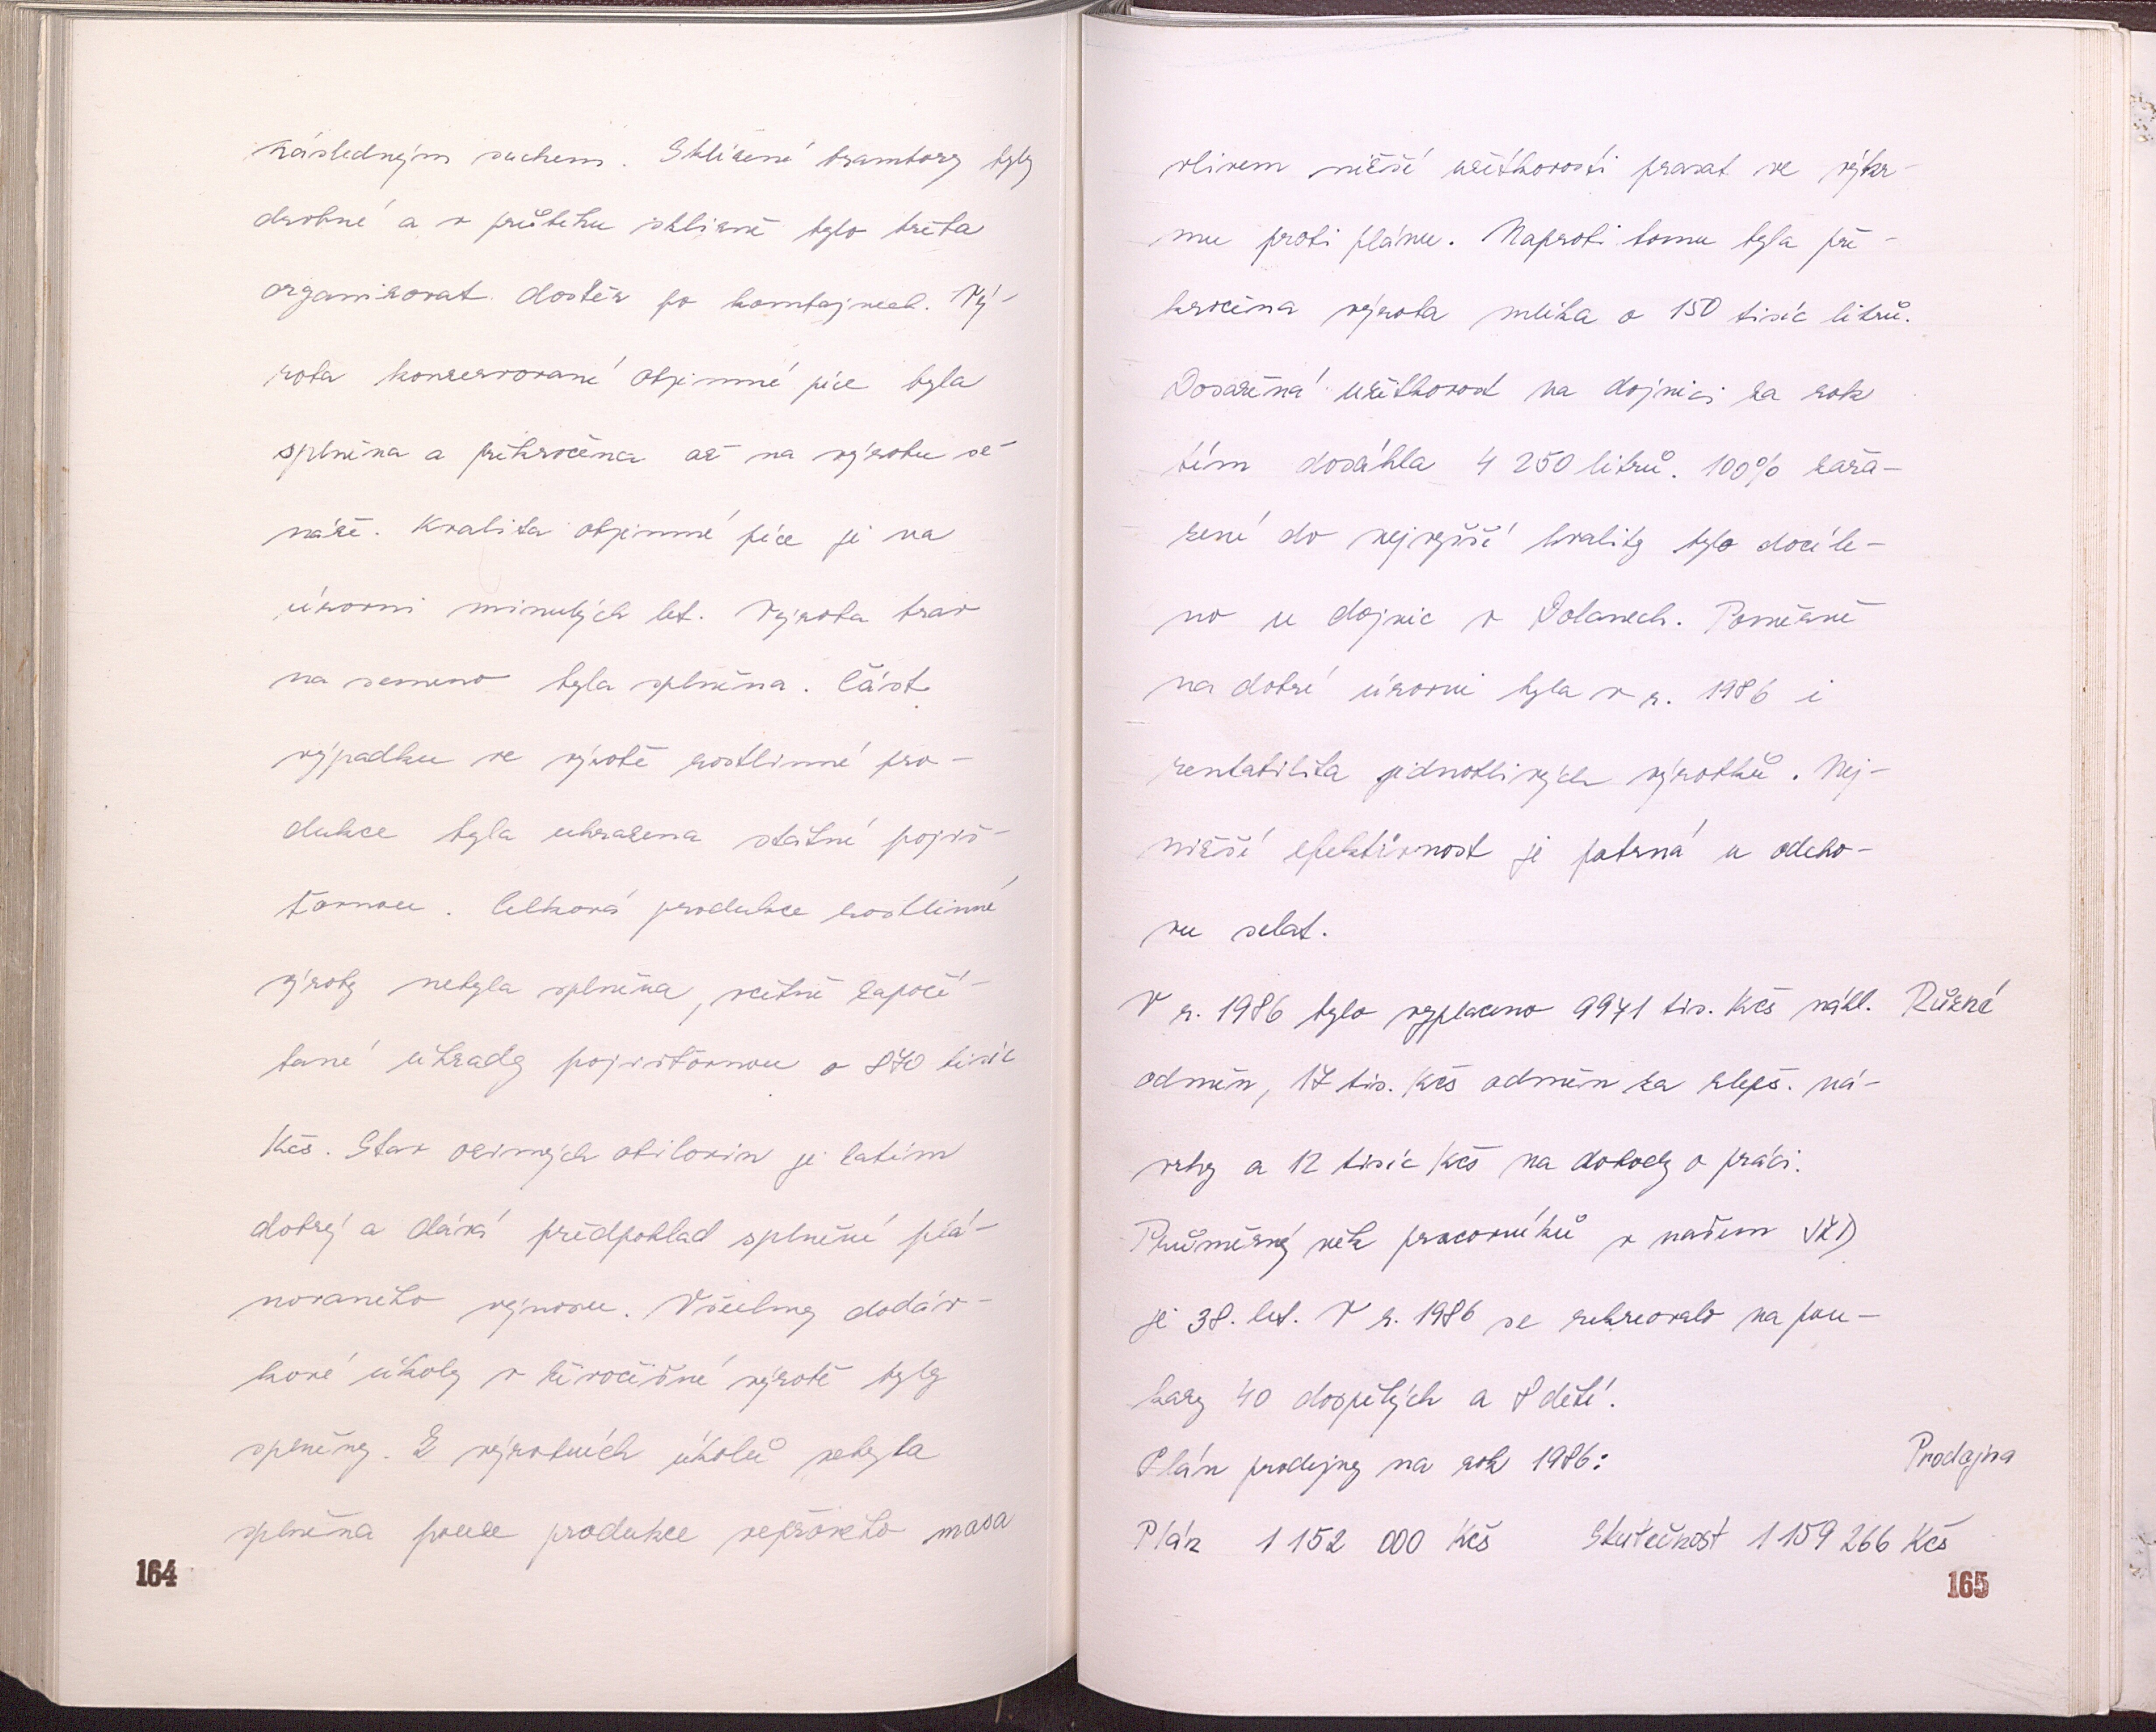 následným suchem. Sklizené brambory byly
drobné a v průběhu sklizně bylo třeba
organisovat dosběr po kombajnech. Vý-
roba konzervované objemné píce byla
splněna a překročena až na výrobu se-
náže. Kvalita objemné píce je na
úrovni minulých let. Výroba trav
na semeno byla splněna. Část
výpadku ve výrobě rostlinné pro-
dukce byla uhrazena státní pojiš-
ťovnou. Celková produkce rostlinné
výroby nebyla splněna, včetně započí-
tané úhrady pojisťovnou o 870 tisíc
Kčs. Stav ozimých obilovin je zatím
dobrý a dává předpoklad splnění plá-
novaného výnosu. Všechny dodáv-
kové úkoly v živočišné výrobě byly
splněny. Z výrobních úkolů nebyla
splněna pouze produkce vepřového masa
164
vlivem nižší užitkovosti prasat ve výkr-
mu proti plánu. Naproti tomu byla pře-
kročena výroba mléka o 150 tisíc litrů.
Dosažená užitkovost na dojnici za rok
tím dosáhla 4 250 litrů. 100% zařa-
zení do nejvyšší kvality bylo docíle-
no u dojnic v Dolanech. Poměrně
na dobré úrovni byla v r. 1986 i
rentabilita jednotlivých výrobků. Nej-
nižší efektivnost je patrná u odcho-
vu selat.
V r. 1986 bylo vyplaceno 9941 tis. Kčs zákl. Různé
odměn, 17 tis. Kčs odměn za zlepš. ná-
vrhy a 12 tisíc Kčs na dohody o práci.
Průměrný věk pracovníků v našem JZD
je 38. let. V r. 1986 se rekreovalo na pou-
kazy 40 dospělých a 8 dětí.
Plán prodejny na rok 1986: Prodejna
Plán 1 152 000 Kčs Skutečnost 1 159 266 Kčs
165